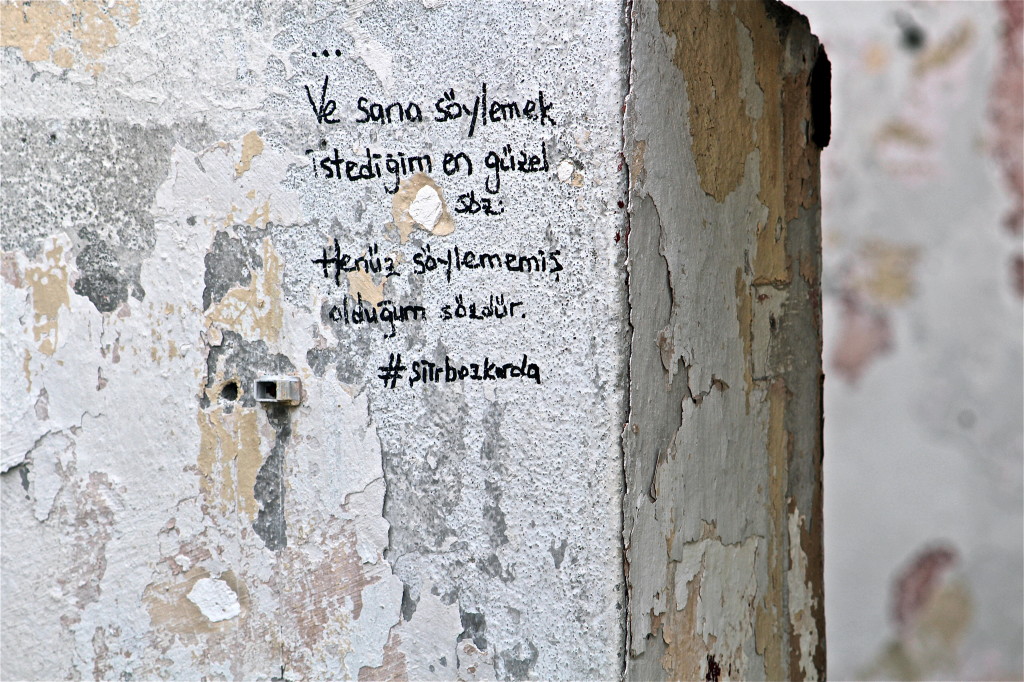 ...
Ve sana söylemek
istediğim en güzel
söz:
Henüz söylememiş
olduğum sözdür.
#şiirbozkırda